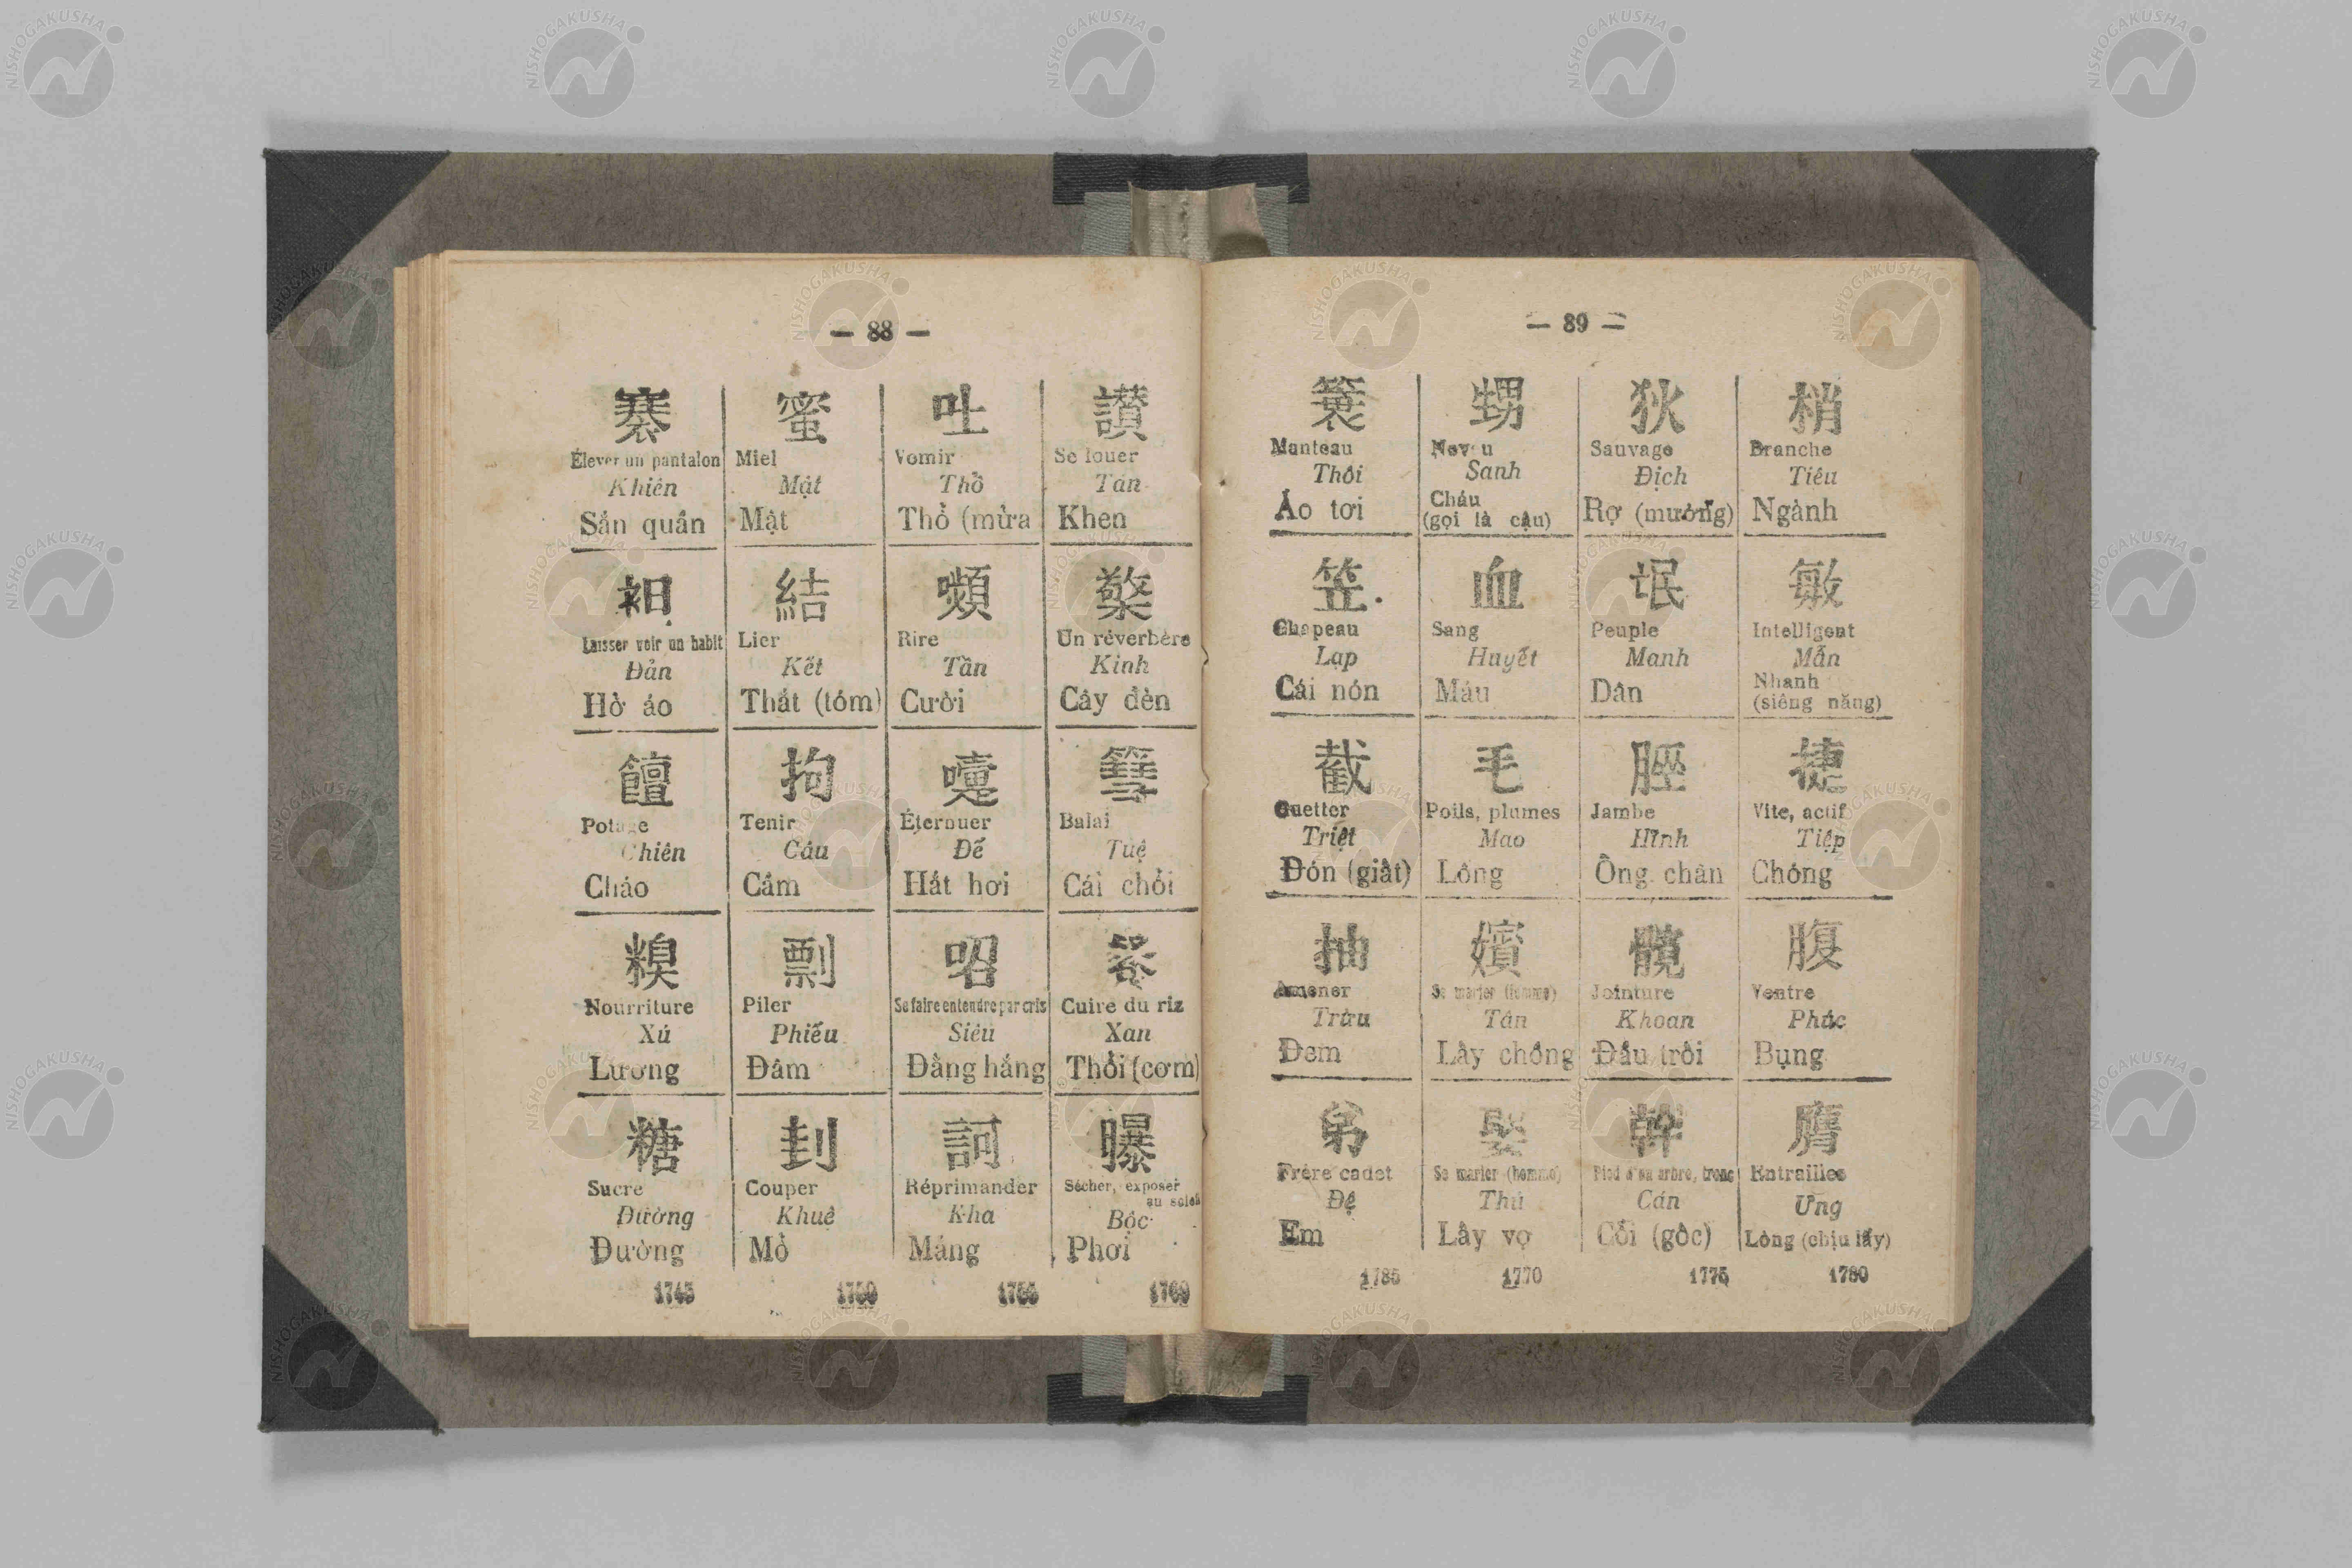 — 88 —
褰 蜜 吐 讃
Élever un pantalon Miel Vomir Se louer
Khiên Mật Thổ Tán
Sắn quần Mật Thổ (mửa Khen
袒 結 嚬 檠
Laisser voir un habit Lier Rire Un réverbère
Đản Kết Tần Kinh
Hở áo Thắt (tóm) Cười Cây đèn
饘 拘 嚏 篲
Potage Tenir Éternuer Balai
Chiên Câu Đế Tuệ
Cháo Cầm Hắt hơi Cái chổi
糗 剽
Nourriture Piler Se faire entendre par cris Cuire du riz
Xú Phiếu Siêu Xan
Lương Đâm Đằng hắng Thổi (cơm)
糖 刲 訶 曝
Sucre Couper Réprimander Sécher, exposer
au soleil
Đường Khuê Kha Bộc
Đường Mổ Mắng Phơi
1745 1750 1755 1760
— 89 —
簑 甥 狄 梢
Manteau Neveu Sauvage Branche
Thôi Sanh Địch Tiêu
Áo tơi Cháu
(gọi là cậu) Rợ (mường) Ngành
笠 血 氓 敏
Chapeau Sang Peuple Intelligent
Lạp Huyết Manh Mẫn
Cái nón Máu Dân Nhanh
(siêng năng)
截 毛 脛 捷
Guetter Poils, plumes Jambe Vite, actif
Triệt Mao Hĩnh Tiệp
Đón (giắt) Lông Ông chân Chóng
抽 嬪 髖 腹
Amener Se marier (femme) Jointure Ventre
Trừu Tân Khoan Phúc
Đem Lấy chồng Đầu trôi Bụng
娶 幹 膺
Frère cadet Se marier (homme) Pied d'un arbre, tronc Entrailles
Đệ Thú Cán Ưng
Em Lấy vợ Cỗi (gốc) Lòng (chịu lấy)
1785 1770 1775 1780
NISHOGAKUSHA